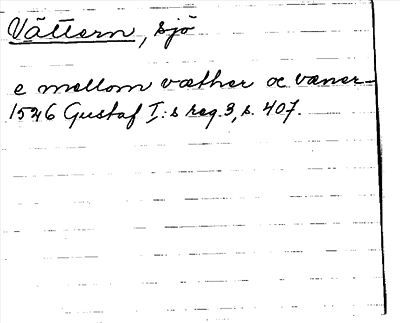 Vättern, sjö
e mellom væther oc væner
1526 Gustaf I:s reg. 3, s. 407.